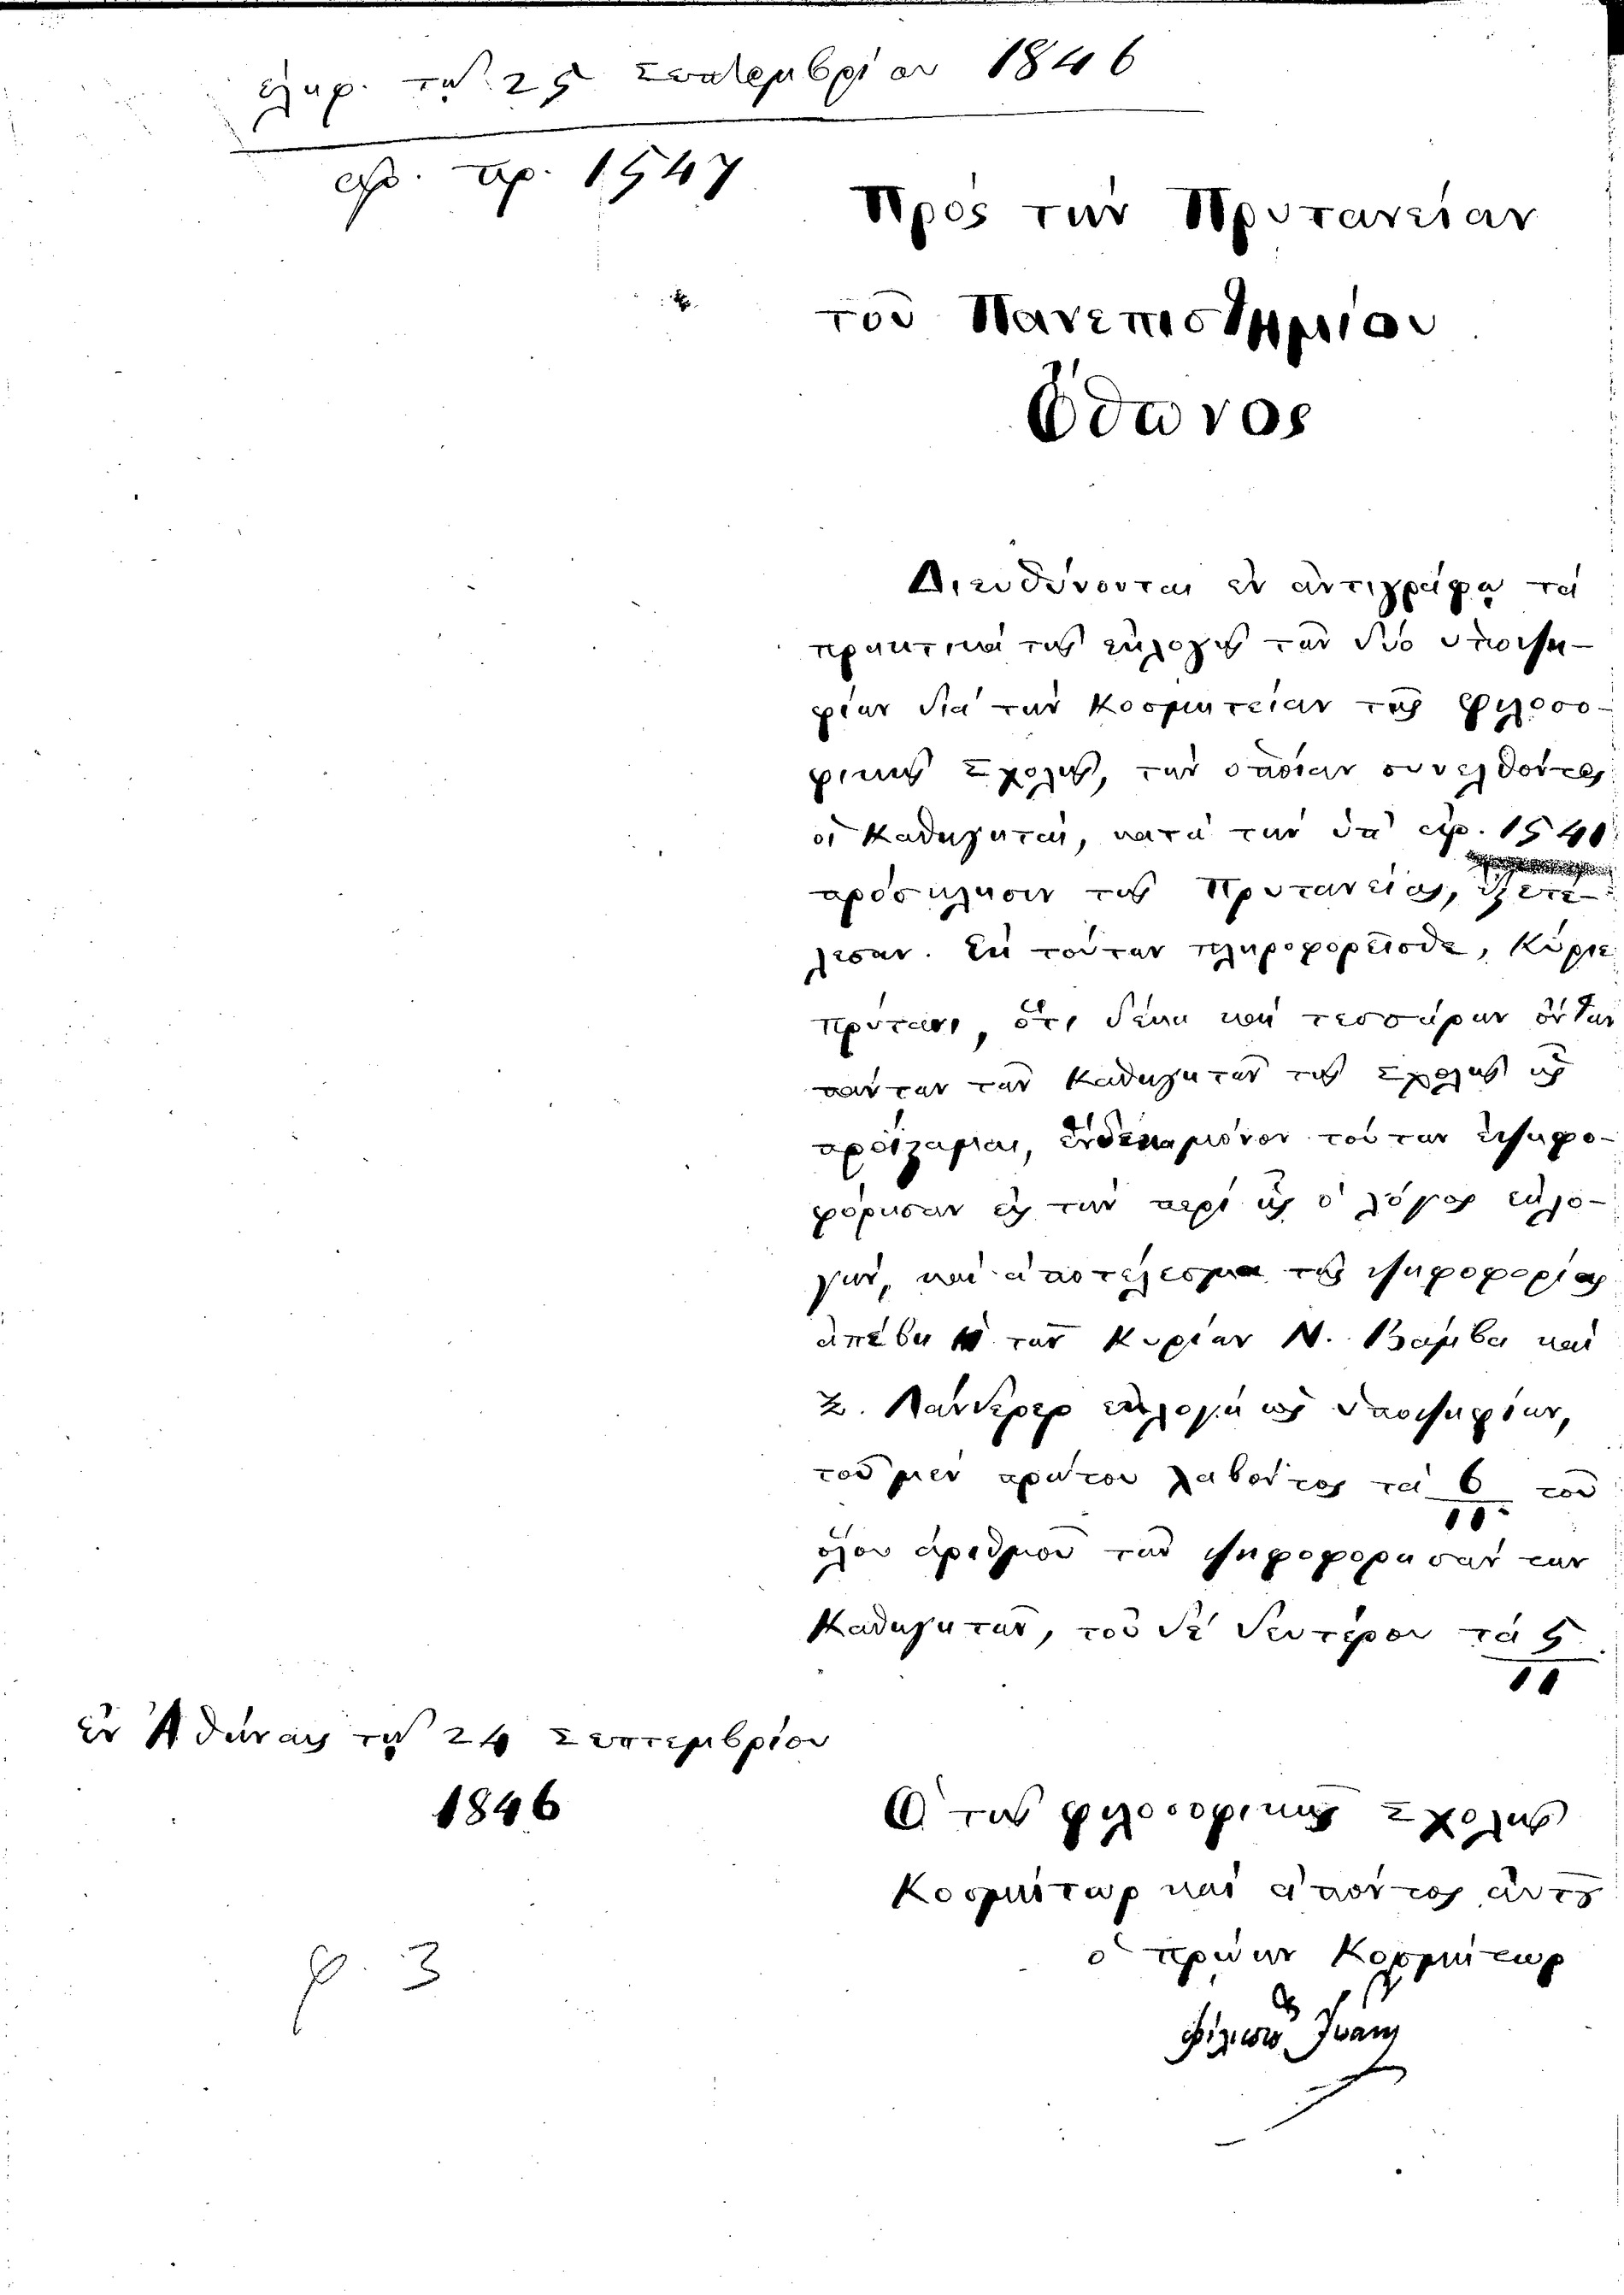 ἐλήφ. τῇ 25 Σεπτεμβρίου 1846
ἀρ. πρ. 1547
Πρός τήν Πρυτανείαν
τοῦ Πανεπιστημίου
Ὄθωνος
Διευθύνονται ἐν ἀντιγράφῳ τά
πρακτικά τῆς ἐκλογῆς τῶν δύο ὑποψη-
φίων διά τήν Κοσμητείαν τῆς Φιλοσο-
φικῆς Σχολῆς, τήν ὁποίαν συνελθόντες
οἱ Καθηγηταί, κατά τήν ὑπ' ἀρ. 1540
πρόσκλησιν τῆς Πρυτανείας, ἐξετέ-
λεσαν. Ἐκ τούτων πληροφορεῖσθε, Κύριε
Πρύτανι, ὅτι δέκα καί τεσσάρων ὄντων
πάντων τῶν Καθηγητῶν τῆς Σχολῆς ἧς
προΐσταμαι, ἕνδεκα μόνον τούτων ἐψηφο-
φόρησαν εἰς τήν περί ἧς ὁ λόγος ἐκλο-
γήν, καί ἀποτέλεσμα τῆς ψηφοφορίας
ἀπέβη ἡ τῶν Κυρίων Ν. Βάμβα καί
Ξ. Λάνδερερ ἐκλογή ὡς ὑποψηφίων,
τοῦ μέν πρώτου λαβόντος τά 6/11 τοῦ
ὅλου ἀριθμοῦ τῶν ψηφοφορησάντων
Καθηγητῶν, τοῦ δέ δευτέρου τά 5/11
ἐν Ἀθήναις τῇ 24 Σεπτεμβρίου
1846
Ὁ τῆς φιλοσοφικῆς Σχολῆς
Κοσμήτωρ καί ἀπόντος αὐτοῦ
ὁ πρώην Κοσμήτωρ
Φίλιππος Ἰωάννου
φ. 3